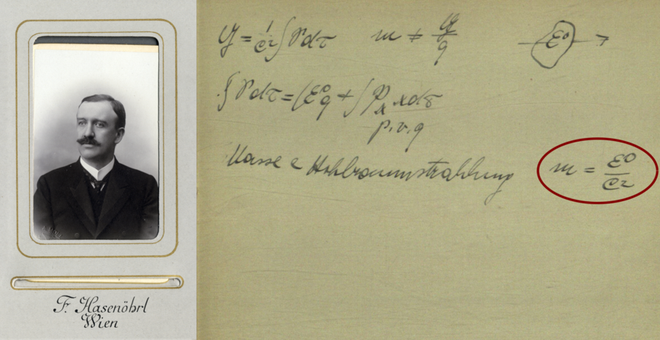 F. Hasenöhrl
Wien
= 1/c² ∫ dτ m ≠ /q ε⁰ →
∫ dτ = (ε⁰q + ∫ dτ
p.v.q
Masse Hohlraumstrahlung m = ε⁰/c²